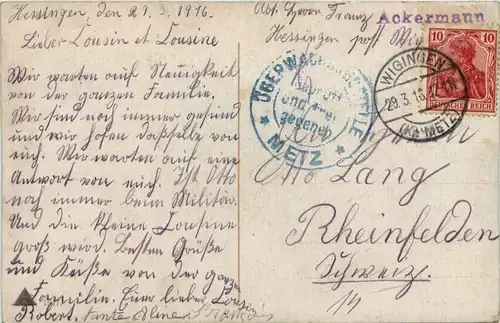 Hessingen, den 29.3.1916.
Lieber Cousin et Cousine
Wir warten auf Neuigkeit
von der ganzen Familie.
Wir sind noch immer gesund
und wir hoffen dasselbe von
euch. Wir warten auf eine
Antwort von euch. Ist Otto
noch immer beim Militär.
Und die kleine Cousine
groß wird. Besten Grüße
und Küße von der ganzen
Familie. Euer lieber Cousin
Robert. tante Aline François
Abt. Herrn Franz
Ackermann
Hessingen post
WIGINGEN
29.3.16
(Kr. METZ)
10 10
DEUTSCHES REICH
ÜBERWACHUNGSSTELLE
Geprüft
und frei
gegeben
METZ
Otto Lang
Rheinfelden
Schweiz.